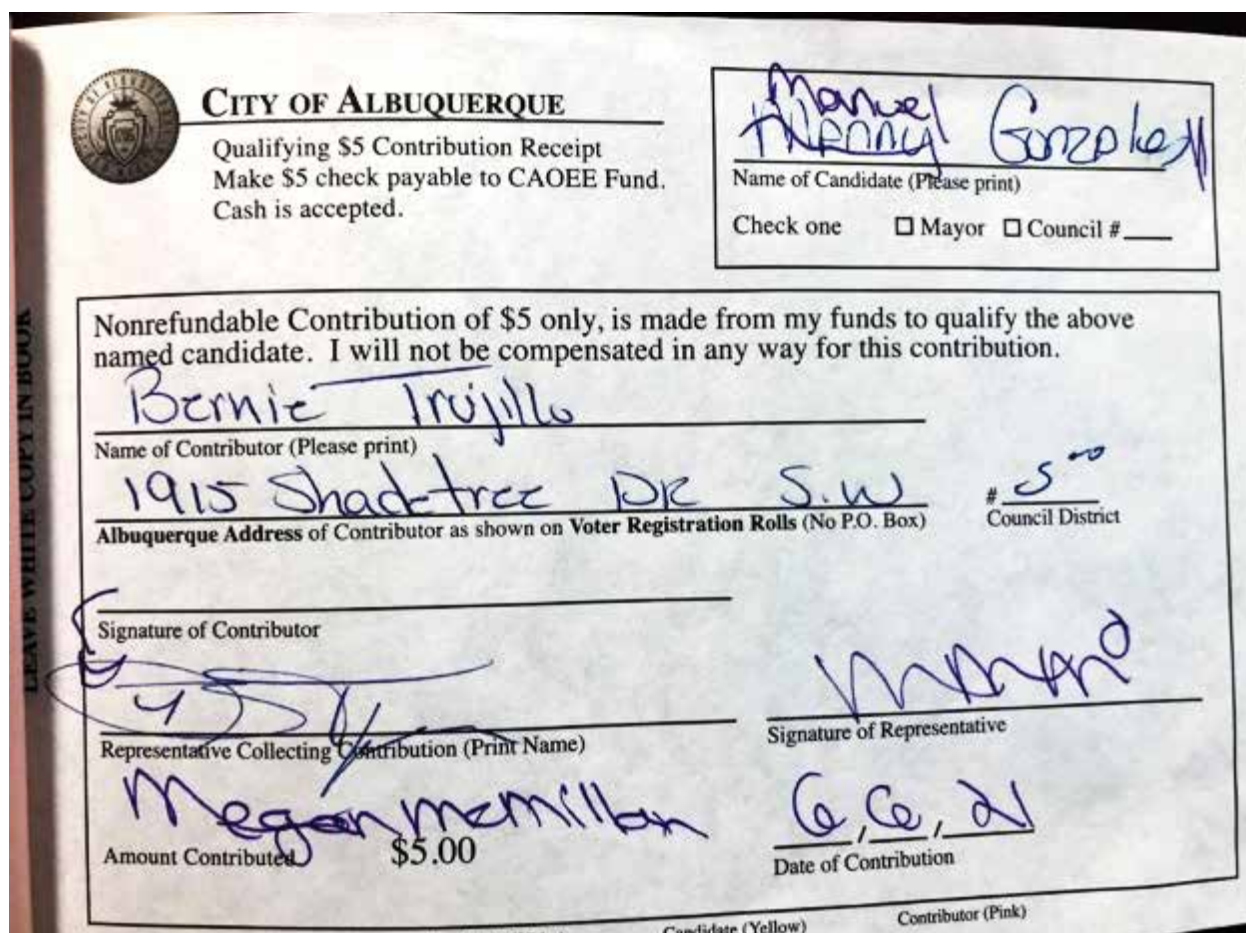 CITY OF ALBUQUERQUE
Qualifying $5 Contribution Receipt
Make $5 check payable to CAOEE Fund.
Cash is accepted.
Manuel
Gonzales
Name of Candidate (Please print)
Check one ☐ Mayor ☐ Council #
LEAVE WHITE COPY IN BOOK
Nonrefundable Contribution of $5 only, is made from my funds to qualify the above
named candidate. I will not be compensated in any way for this contribution.
Bernie Trujillo
Name of Contributor (Please print)
1915 Shadetree DR S.W # 5 00
Albuquerque Address of Contributor as shown on Voter Registration Rolls (No P.O. Box) Council District
Signature of Contributor
Representative Collecting Contribution (Print Name) Signature of Representative
Megan McMillan 6, 6, 21
Amount Contributed $5.00 Date of Contribution
Candidate (Yellow) Contributor (Pink)